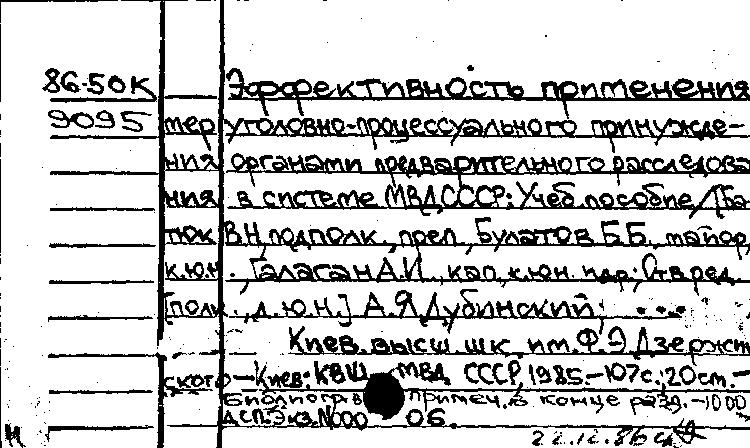 86-50К Эффективность применения
9095 мер уголовно-процессуального принужде-
ния органами предварительного расследова
ния в системе МВД СССР: Учеб. пособие /[Ба
тюк В.Н., подполк., преп., Булатов Б.Б., майор,
к.ю.н., Галаган А.И., кап., к.юн. и др.; Отв ред.
[полк., д.ю.н.] А.Я Дубинский; ...
Киев. высш. шк. им. Ф.Э Дзержин
ского – Киев: КВШ МВД СССР, 1985.–107с.; 20см.–
Библиогр. в примеч. в конце разд. –1000
ДСП. Экз. N000 06.
Н 22.12.86